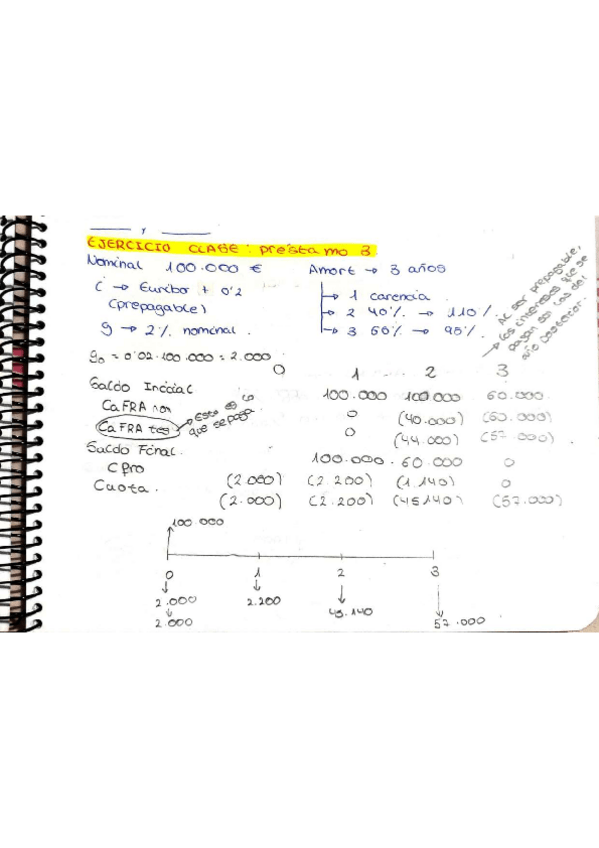 y
EJERCICIO CLASE: préstamo 3.
Nominal 100.000 € Amort → 3 años
i → Euribor + 0'2 → 1 carencia.
(prepagable) → 2 40% → 110%
g → 2% nominal. → 3 60% → 95%
Al ser prepagable,
→ los intereses que se
pagan son los del
año posterior.
g₀ = 0'02·100.000 = 2.000
0 1 2 3
Saldo Inicial 100.000 100.000 60.000
CaFRA nom 0 (40.000) (60.000)
CaFRA teo → Esto es lo que se paga 0 (44.000) (57.000)
Saldo Final. 100.000 60.000 0
C pro (2.000) (2.200) (1.140) 0
Cuota. (2.000) (2.200) (45140) (57.000)
100 000
0 1 2 3
2.000 2.200 45.140 57.000
2.000